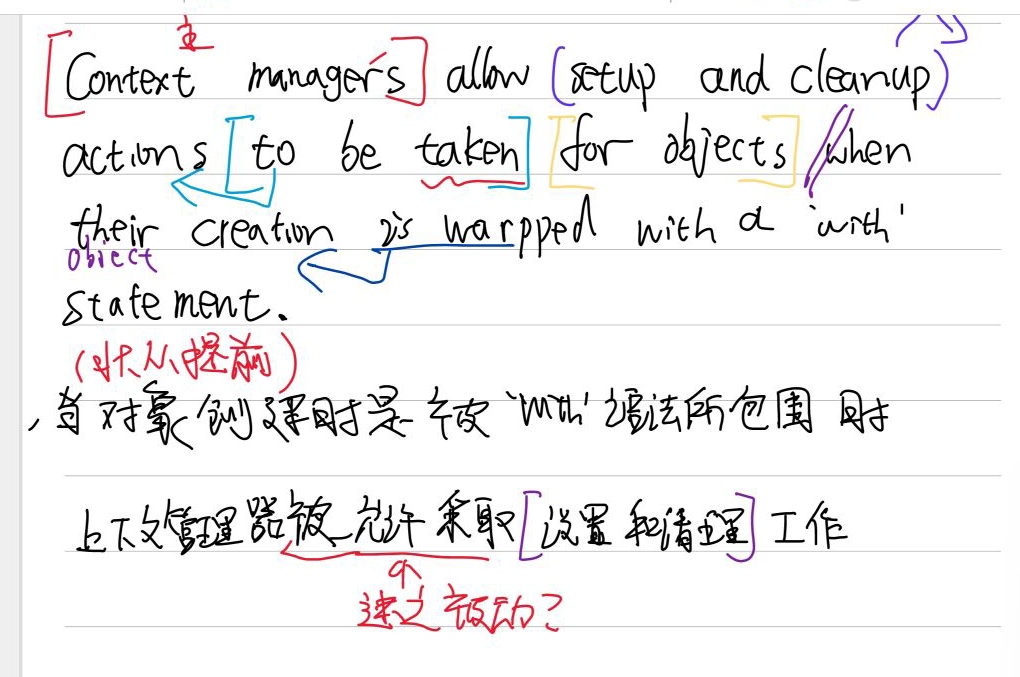 主
Context managers allow (setup and cleanup)
actions [to be taken] [for objects] when
their creation is warpped with a 'with'
object
statement.
(状从提前)
当对象创建时是被'with'语法所包围时
上下文管理器被允许采取[设置和清理]工作
迷之被动?